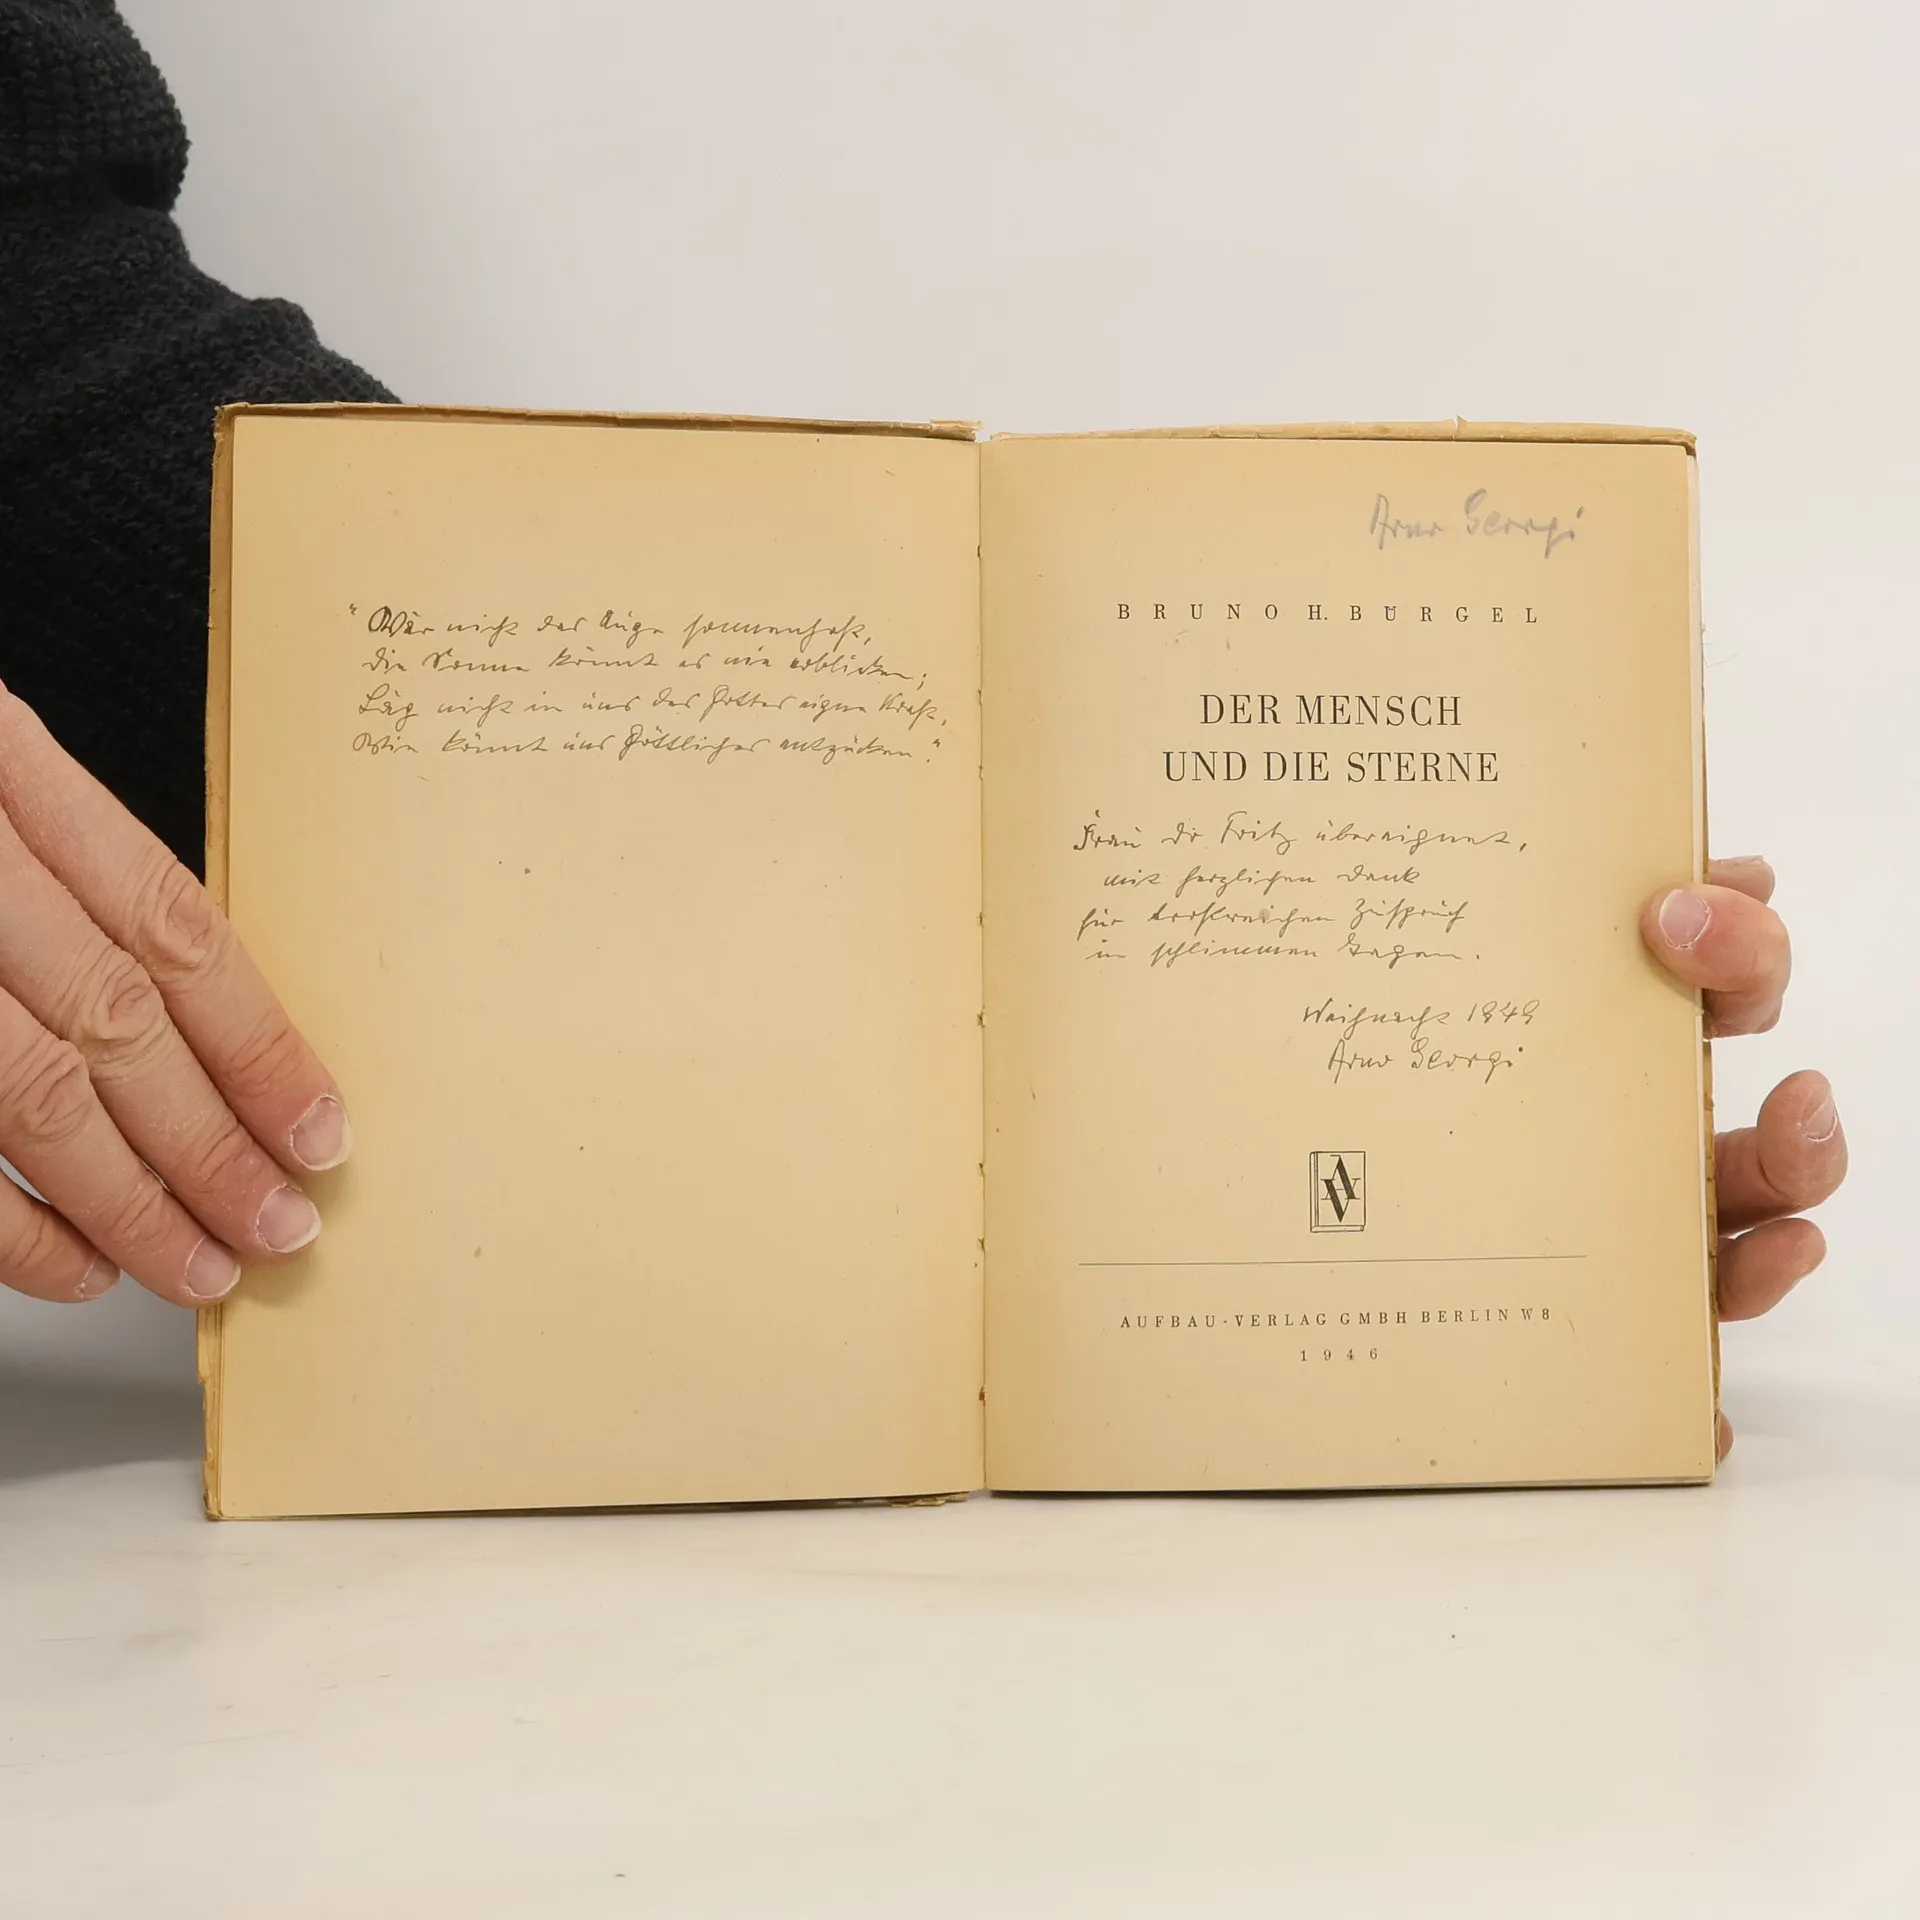 "Wär nicht das Auge sonnenhaft,
die Sonne könnt es nie erblicken;
Läg nicht in uns des Gottes eigne Kraft,
Wie könnt uns Göttliches entzücken."
Arno Georgi
BRUNO H. BÜRGEL
DER MENSCH
UND DIE STERNE
Frau Dr Fritz übereignet,
mit herzlichen Dank
für trostreichen Zuspruch
in schlimmen Tagen.
Weihnacht 1949
Arno Georgi
AV
AUFBAU-VERLAG GMBH BERLIN W 8
1946